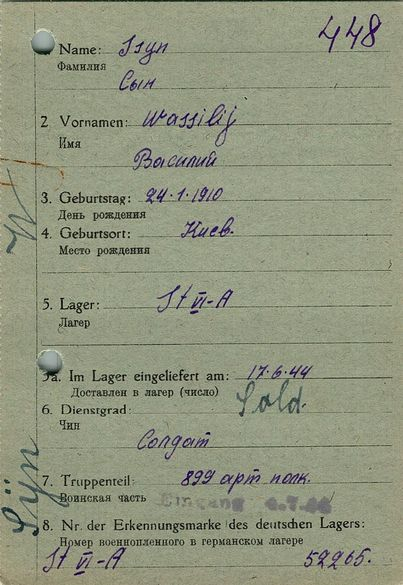 448
1. Name: Ssyn
Фамилия
Сын
2. Vornamen: Wassilij
Имя
Василий
3. Geburtstag: 24.1.1910
День рождения
4. Geburtsort: Киев.
Место рождения
5. Lager: St VI-A
Лагер
5a. Im Lager eingeliefert am: 17.6.44
Доставлен в лагер (число)
6. Dienstgrad: Sold.
Чин
Солдат
7. Truppenteil: 899 арт. полк.
Воинская часть Eingang
8. Nr. der Erkennungsmarke des deutschen Lagers:
Номер военнопленного в германском лагере
St VI-A 52265.